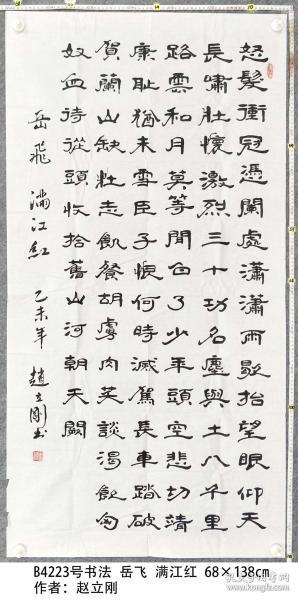 怒髮衝冠憑闌處瀟瀟雨歇抬望眼仰天
長嘯壯懷激烈三十功名塵與土八千里
路雲和月莫等閒白了少年頭空悲切靖
康耻猶未雪臣子恨何時滅駕長車踏破
賀蘭山缺壯志飢餐胡虜肉笑談渴飲匈
奴血待從頭收拾舊山河朝天闕
岳飛 滿江紅 乙未年 趙立剛书
B4223号书法 岳飞 满江红 68×138cm
作者：赵立刚